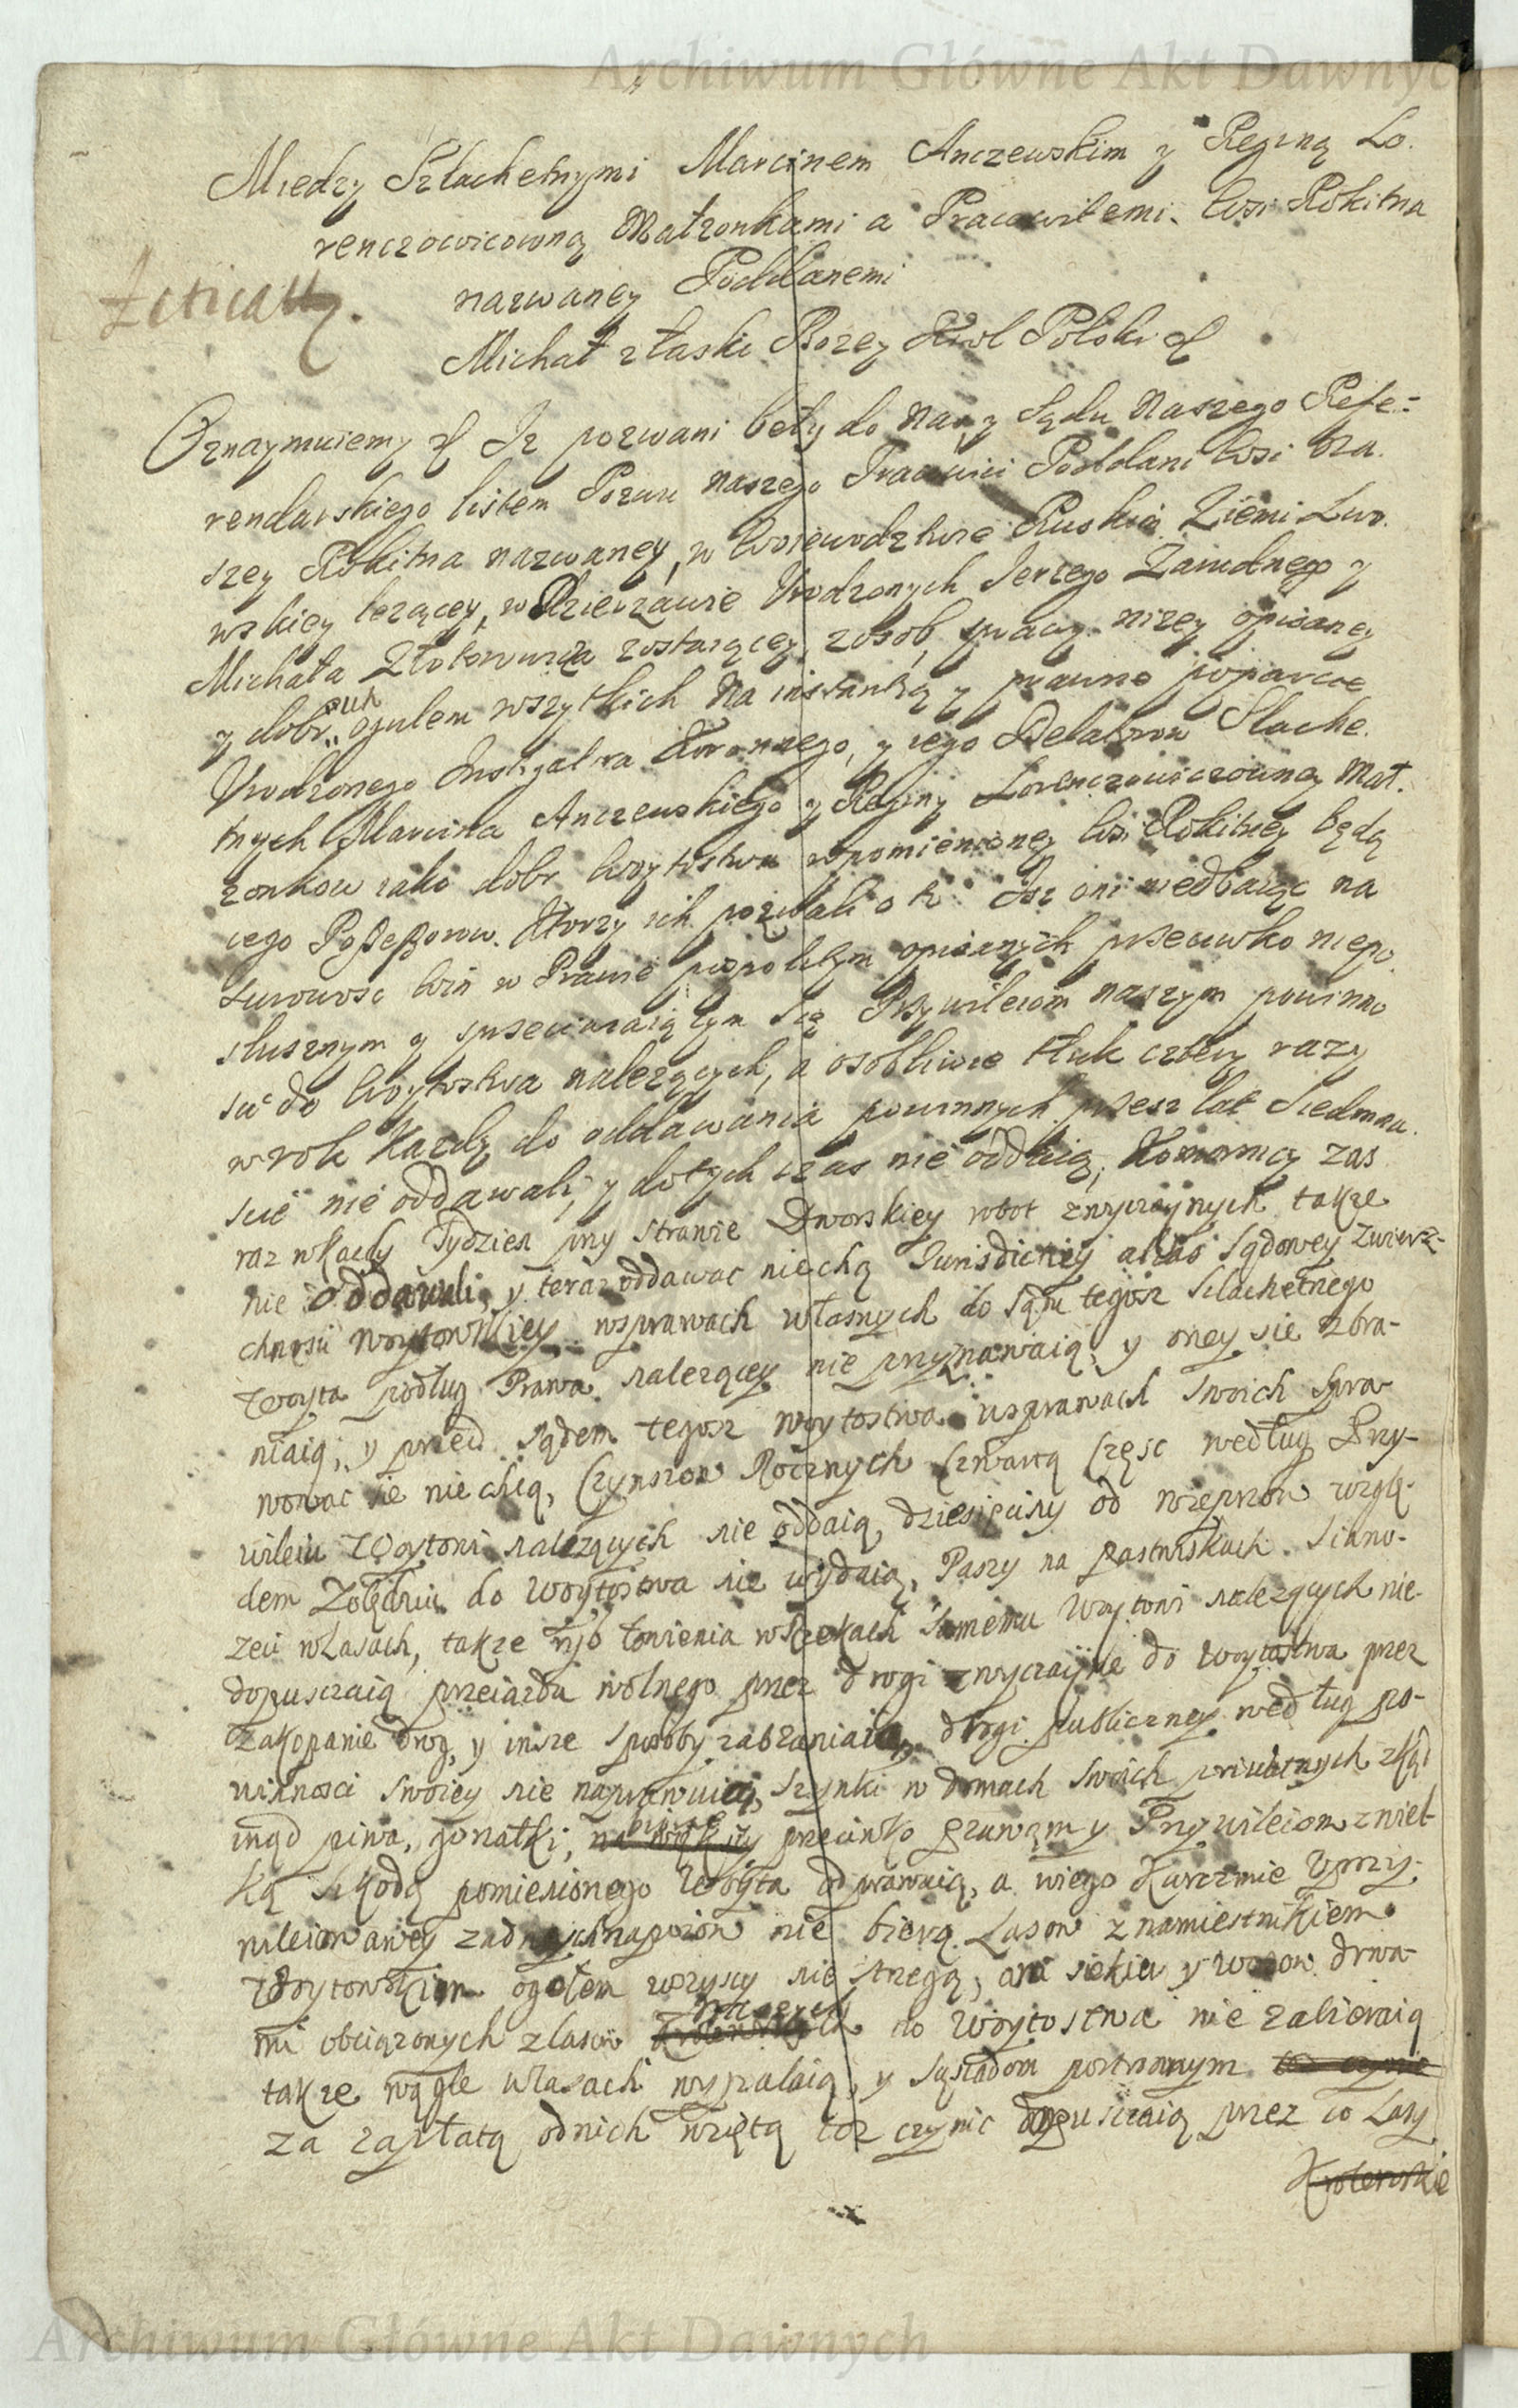 Archiwum Główne Akt Dawnych
Miedzy Szlachetnymi Marcinem Anczewskim y Reginą Lo.
renczowicowną Małzonkami a Pracowitemi Wsi Rokitna
nazwaney Poddanemi
Michał z łaski Bozey Krol Polski
Oznaymuiemy Iz pozwani beły do Nas y Sądu Naszego Refe-
rendarskiego listem Pozwu naszego Pracowici Poddani Wsi na.
szey Rokitna nazwaney, w Woiewodztwie Ruskim Ziemi Lwo.
wskiey lezącey, w Dzierzawie Urodzonych Jerzego Zawidnego y
Michała Złotowicza zostaiącey, z osob, y pracy nizey opisaney
y dobr ich ogulem wszytkich Na instantią y prawne poparcie
Urodzonego Instigatora Koronnego, y iego Delatorow Slache.
tnych Marcina Anczewskiego y Reginy Lorenczowiczowney Mał.
zonkow iako dobr Woytostwa wpomienioney Wsi Rokitney będą
cego Possessorow. Ktorzy ich pozwali o to Isz oni niedbaiąc na
surowosc win w Prawie pospolitym opisanych przeciwko niepo.
slusznym y sprzeciwiaiącym się Przywileiom naszym powinno
sci do Woytostwa nalezących, a osobliwie tłuk cztery razy
w rok kazdy do oddawania powinnych przesz lat siedmna.
scie nie oddawali, y dotych czas nie oddaią, Komornicy zas
raz wkazdy Tydzien przy Stranie Dworskiey robot zwyczaynych takze
nie oddawali, y teraz oddawac niechcą Jurisdictiey alias Sądowey zwierz-
chnosci woytowskiey wsprawach własnych do Sądu tegosz Slachetnego
Woyta podług Prawa nalezącey nie przyznawaią, y oney sie zbra-
niaią, y przed Sądem tegosz woytostwa wsprawach swoich spra-
wowac sie nie chcą, Czynszow Rocznych czwartą częsc według Przy-
wileiu Woytowi nalezących nie oddaią, dziesięciny od wieprzow wzglę-
dem Zołędziu do woytostwa nie wydaią, Paszy na pastwiskach. Siano-
zeci wlasach, takze ryb łowienia wRzekach samemu Woytowi nalezących nie-
dopusczaią przeiazdu wolnego przez drogi zwyczayne do woytostwa przez
Zakopanie drog, y insze sposoby zabraniaią, drogi publiczney według po-
winnosci swoiey nie naprawuią, szynki w domach swoich priwatnych zkąd
inąd piwa, gorzałki, biorąc przeciwko prawom y Przywileiom zwiel-
ką szkodą pomienionego Woyta odprawuią, a wiego Karczmie Uprzy-
wileiowaney zadnych napoiow nie biorą Lasow z namiestnikiem
Woytowskim ogołem wszyscy nie strzegą, ani siekier y wozow drwa-
mi obciązonych zlasow naszych do Woytostwa nie zabieraią
takze węgle wlasach wypalaią, y sąsiadom postronnym to czynic
za zapłatą odnich wziętą toz czynic dopusczaią przez co Lasy
Krolewskie
Archiwum Główne Akt Dawnych